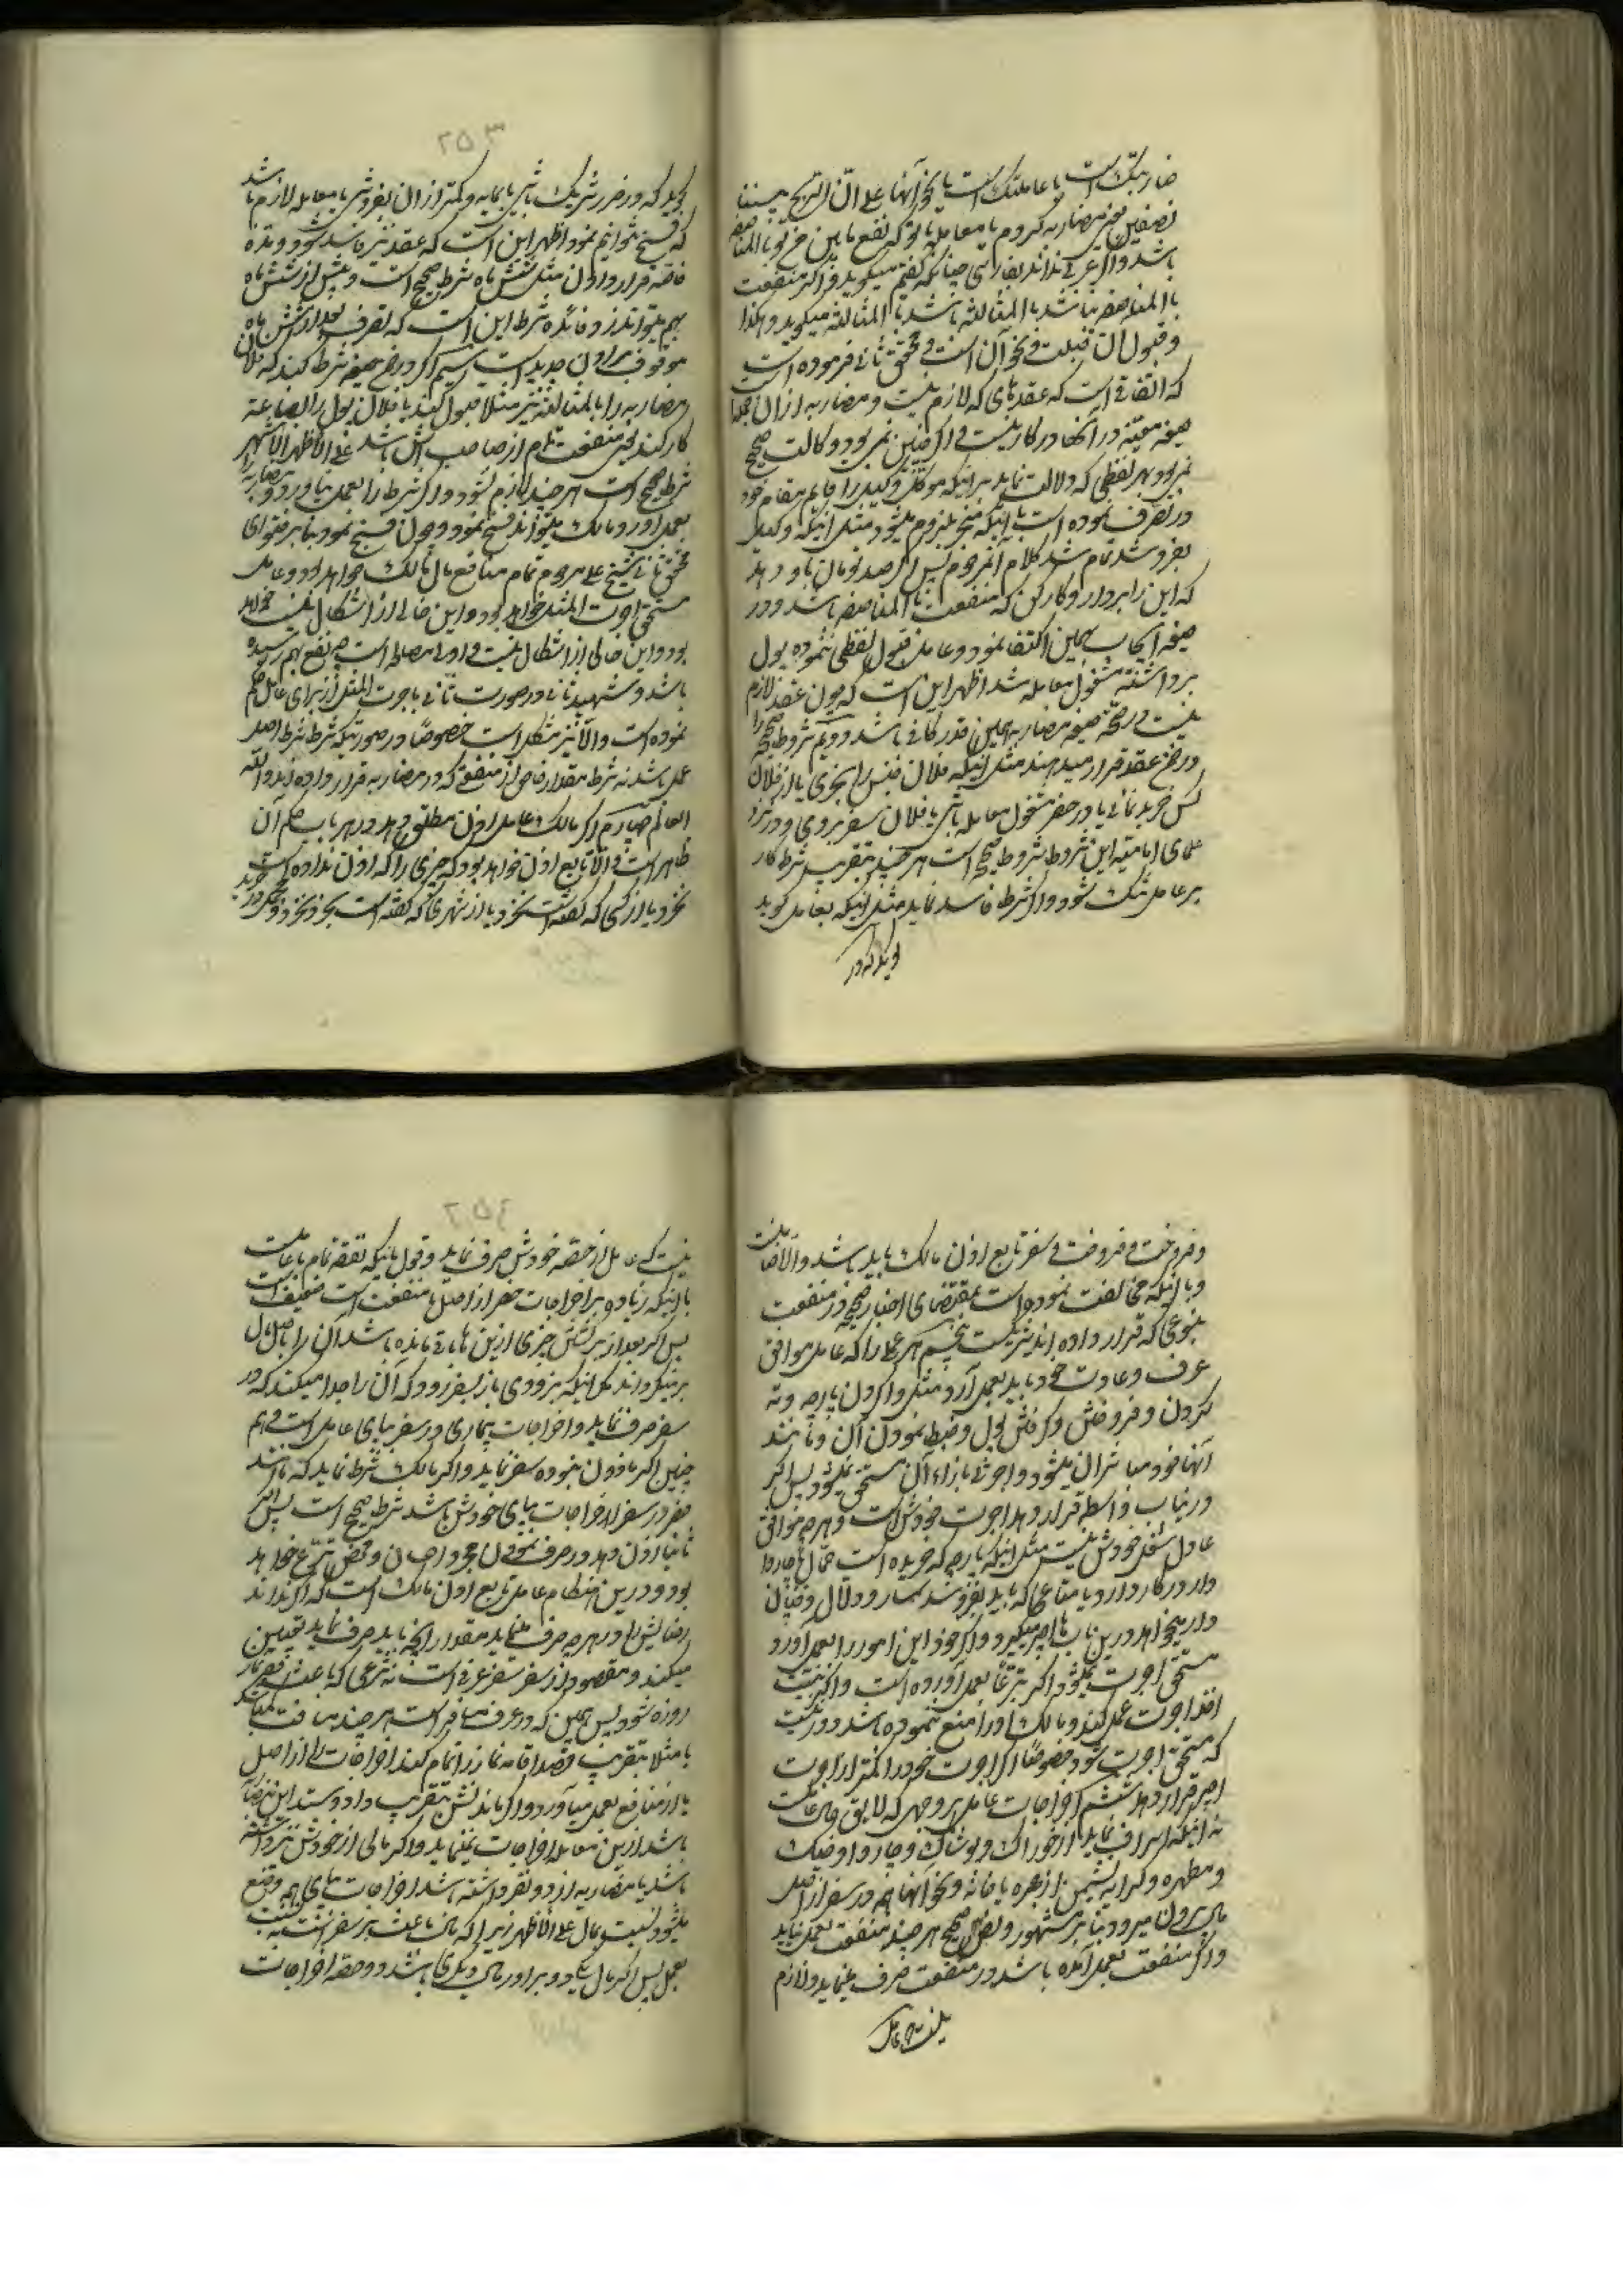 ضاربتک است یا عاملتک است یا نحو آنها علی انّ الربح بیننا
نصفین یعنی مضاربه کردم یا معامله با تو که نفع مابین من و تو بالمناصفه
باشد و اگر عربی نداند بفارسی چنانکه گفتیم میگوید و اگر منفعت
بالمناصفه نباشد بالمثالثه باشد بالمثالثه میگوید و هکذا
و قبول آن قبلت و نحو آن است و محقق ثانی فرموده است
که اتفاقی است که عقدهای که لازم نیست و مضاربه از آن جمله است
صیغه معیّنه در آنها در کار نیست و اگر چنین نمی بود وکالت صحیح
نمی بود بهر لفظی که دلالت نماید بر اینکه موکل وکیل را قایم مقام خود
در تصرف نموده است با اینکه منجر بلزوم میشود مثل اینکه وکیل
بفروشد تمام شد کلام آنمرحوم پس اگر صد تومان باو دهد
که این را بردار و کار کن که منفعت بالمناصفه باشد و در
صیغه ایجاب بهمین اکتفا نمود و عامل قبول لفظی ننموده پول
برداشته مشغول معامله شد اظهر این است که چون عقد لازم
نیست در صحّة صیغه مضاربه همین قدر کافی باشد دویم شروط صحیحه را
در ضمن عقد قرار میدهند مثل اینکه فلان جنس را بخری یا از فلان
کس خرید نمائی یا در حضر مشغول معامله باشی یا فلان سفر بروی و در نزد
علمای امامیّه این شروط شروط صحیح است هر چند بتقریب شرط کار
بر عامل تنگ شود و اگر شرط فاسد نماید مثل اینکه بعامل گوید
گوید که در
۲۵۳
گوید که در ضرر شریک باشی یا بمایه و کمتر از آن بفروشی یا معامله لازم باشد
که فسخ نتوانیم نمود اظهر این است که عقد نیز فاسد شود و مدّة
خاصّه قرار دادن مثل شش ماه شرط صحیح است و پیش از شش ماه
بهم میتوانند زد و فائده شرط این است که تصرف بعد از شش ماه
موقوف باذن جدید است سیّم اگر در ضمن صیغه شرط کند که فلان
مضاربه را بالمثالثه نیز مثلا قبول کند یا فلان پول را بضاعة
کار کند یعنی منفعت تمام از صاحب اش باشد علی الاظهر الاشهر
شرط صحیح است هر چند لازم نشود و اگر شرط را بعمل نیاورد و مضاربه را
بعمل آورد مالک میتواند فسخ نمود و چون فسخ نمود بنابر فتوای
محقق ثانی شیخ علی مرحوم تمام منافع مال مالک خواهد بود و عامل
مستحق اجرت المثل خواهد بود و این خالی از اشکال نیست خواهد
بود و این خالی از اشکال نیست و اولی مصالحه است هر نفع بهم رسیده
باشد و شهید ثانی در صورت ثانی باجرت المثل از برای عامل حکم
نموده است و الّا نیز مشکل است خصوصًا در صورتیکه شرط شرط اصل
عمل باشد نه شرط مقدار خاص از منفعتی که در مضاربه قرار داده اند و اللّه
العالم چهارم اگر مالک بعامل اذن مطلق دهد در هر باب حکم آن
ظاهر است و الّا تابع اذن خواهد بود که چیزی را که اذن نداده است نخرد
نخرد یا از کسی که گفته است نخرد یا از شهری که گفته است بخرد بخرد و همچنین در
و فروخت و فروخت و سفر تابع اذن مالک باید باشد و الّا ضامن است
و با اینکه مخالفت نموده است بمقتضای اخبار صحیحه در منفعت
بنوعی که قرار داده اند شریکست پنجم هر عملی را که عامل موافق
عرف و عادت خود باید بعمل آرد مثل وا کردن پارچه و ته
کردن و فروختن و گرفتن پول و ضبط نمودن آن و مانند
آنها خود مباشر آن میشود و اجرتی بازاء آن مستحق نمیشود پس اگر
در این باب واسطه قرار دهد اجرت خودش است و هر چه موافق
عادت شغل خودش نیست مثل اینکه پارچه که خریده است حمّال و چاروا
دار در کار دارد یا متاعی که باید بفروشد سمسار و دلّال و قپان
دار میخواهد در این باب اجیر میگیرد و اگر خود این امور را بعمل آورد
مستحق اجرت نمیشود اگر تبرّعًا بعمل آورده است و اگر بنیّت
اخذ اجرت عمل کند و مالک او را منع ننموده باشد دور نیست
که مستحق اجرت شود خصوصًا اگر اجرت خود را کمتر از اجرت
اجیر قرار دهد ششم اخراجات عامل بر وجهی که لایق بحال عاملست
نه اینکه اسراف نماید از خوراک و پوشاک و چاروا و خیک
و مطهره و کرایه نشیمن از حجره یا خانه و نحو آنها هم در سفر از اصل
مال بیرون میرود بنا بر مشهور و نصّ صحیح هر چند منفعت بعمل نیاید
و اگر منفعت بعمل آمده باشد در منفعت صرف مینماید و لازم
نیست که عامل
۲۵٤
نیست که عامل از حصّه خودش صرف نماید و قول باینکه نفقه تمام با عاملست
یا اینکه زیاده بر اخراجات حضر از اصل یا منفعت است ضعیف است
پس اگر بعد از برگشتن چیزی از این ها باقی مانده باشد آن را باصل مال
برمیگرداند مگر اینکه بزودی باز بسفر رود که آن را جدا میکند که در
سفر صرف نماید و اخراجات بیماری در سفر بپای عامل است و هم
چنین اگر ماذون نبوده سفر نماید و اگر مالک شرط نماید که مانند
حضر در سفر اخراجات بپای خودش باشد شرط صحیح است پس اگر
ثانیا اذن دهد در صرف نمودن آن جود و احسان و محض تبرّع خواهد
بود و در این هنگام عامل تابع اذن مالک است که اگر نداند
رضایش را در هر چه صرف مینماید مقدار آنچه باید صرف نماید تعیین
میکند و مقصود از سفر سفر عرفی است نه شرعی که باعث قصر نماز
روزه شود پس همین که در عرف مسافر است هر چند مسافت نباشد
یا مثلا بتقریب قصد اقامه نماز را تمام کند اخراجات را از اصل
یا از منافع بعمل می آورد و اگر ماندنش بتقریب داد و ستد این نباشد
باشد از این معامله اخراجات نمینماید و اگر مالی از خودش نیز داشته
باشد یا مضاربه از دو نفر داشته باشد اخراجات بپای هم وضع
میشود نسبت بمال علی الاظهر زیرا که مال باعث بر سفر است نه
بعمل پس اگر مال یکی دو برابر مال دیگری باشد دو حصّه اخراجات